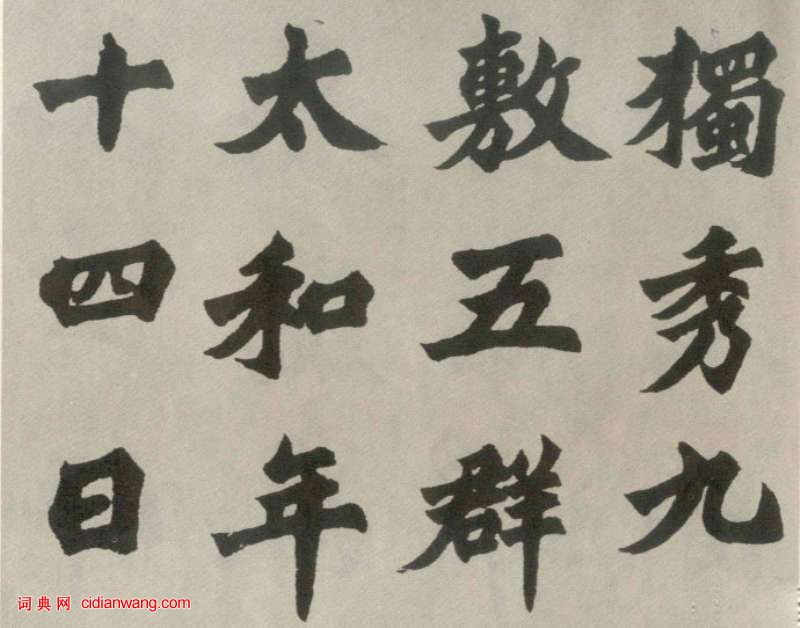 獨秀九
敷五群
太和年
十四日
词典网 cidianwang.com